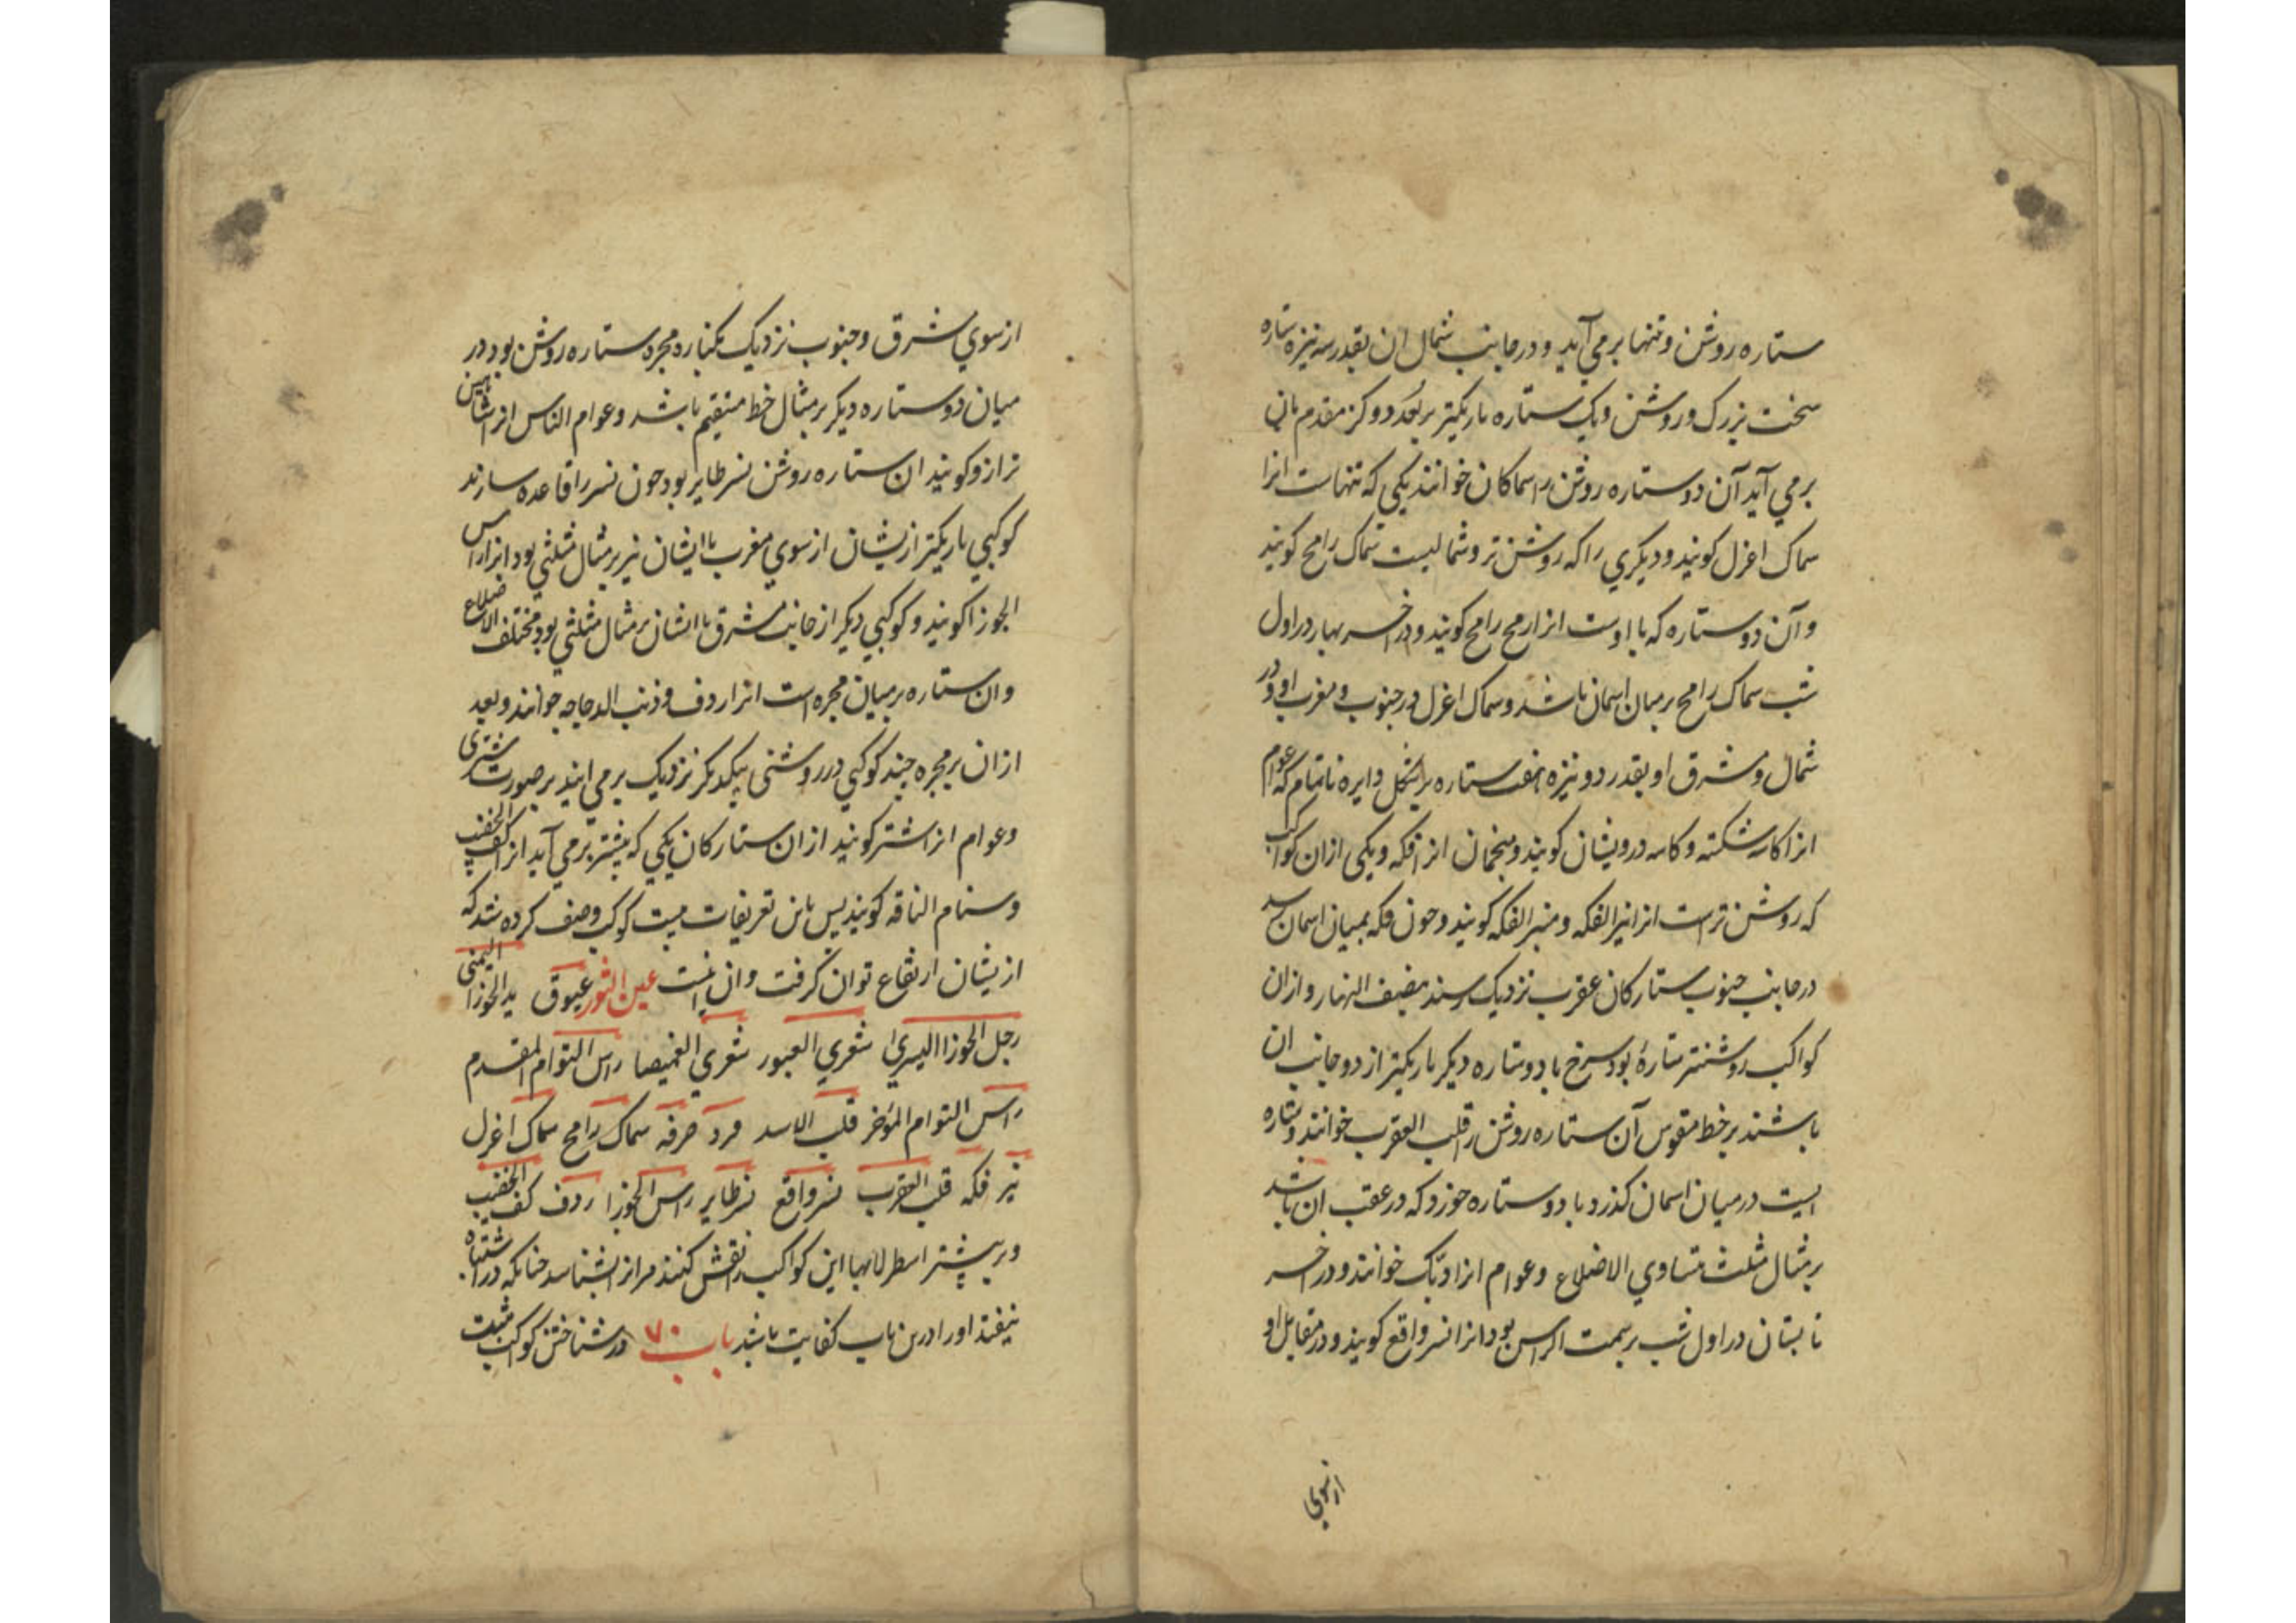 ستاره روشن و تنها برمي آيد و در جانب شمال ان بقدر سه نيزه ستاره
سخت بزرک و روشن و يک ستاره باريکتر بر بُعد دو کز مقدم بان
برمي آيد آن دو ستاره روشن را سماکان خوانند يکي که تنهاست انرا
سماک اعزل کويند و ديکري را که روشن تر و شماليست سماک رامح کويند
و آن دو ستاره که با اوست انرا رمح رامح کويند و در اخر بهار در اول
شب سماک رامح بر ميان اسمان باشد و سماک اعزل در جنوب و مغرب او و در
شمال و مشرق او بقدر دو نيزه هفت ستاره بر شکل دايره ناتمام که عوام
انرا کاسه شکسته و کاسه درويشان کويند و منجمان انرا فکه و يکي ازان کواکب
که روشن ترست انرا نير الفکه و منير الفکه کويند و چون فکه بميان اسمان رسد
در جانب جنوب ستارکان عقرب نزديک رسند بنصف النهار و ازان
کواکب روشنتر ستارهٔ بود سرخ با دو ستاره ديکر باريکتر از دو جانب ان
باشند بر خط مقوس آن ستاره روشن را قلب العقرب خوانند و ستاره
ايست در ميان اسمان کذرد با دو ستاره خورد که در عقب ان باشد
بر مثال مثلث متساوي الاضلاع و عوام انرا ديک خوانند و در اخر
تابستان در اول شب بر سمت الراس بود انرا نسر واقع کويند و در مقابل او
از سوي
از سوي مشرق و جنوب نزديک بکناره مجره ستاره روشن بود در
ميان دو ستاره ديکر بر مثال خط مستقيم باشد و عوام الناس انرا شاهين
ترازو کويند ان ستاره روشن نسر طاير بود چون نسر را قاعده سازند
کوکبي باريکتر ازيشان از سوي مغرب با ايشان نيز بر مثال مثلثي بود انرا راس
الجوزا کويند و کوکبي ديکر از جانب مشرق با ايشان بر مثال مثلثي بود مختلف الاضلاع
و ان ستاره بر ميان مجره است انرا ردف و ذنب الدجاجه خوانند و بعد
ازان بر مجره چند کوکبي در روشني بيکديکر نزديک برمي ايند بر صورت شتري
و عوام انرا شتر کويند ازان ستارکان يکي که پيشتر برمي آيد انرا کف الخضيب
و سنام الناقه کويند پس باين تعريفات بيست کوکب وصف کرده شد که
ازيشان ارتفاع توان کرفت و ان اينست عين الثور عيوق يد الجوزا اليمني
رجل الجوزا اليسري شعري العبور شعري الغميصا راس التوام المقدم
راس التوام المؤخر قلب الاسد فرد صرفه سماک رامح سماک اعزل
نير فکه قلب العقرب نسر واقع نسر طاير راس الجوزا ردف کف الخضيب
و بر بيشتر اسطرلابها اين کواکب را نقش کنند مر انرا بشناسد چنانکه در اشتباه
نيفتد اورا درين باب کفايت باشد باب ٧٠ در شناختن کواکب مثبت